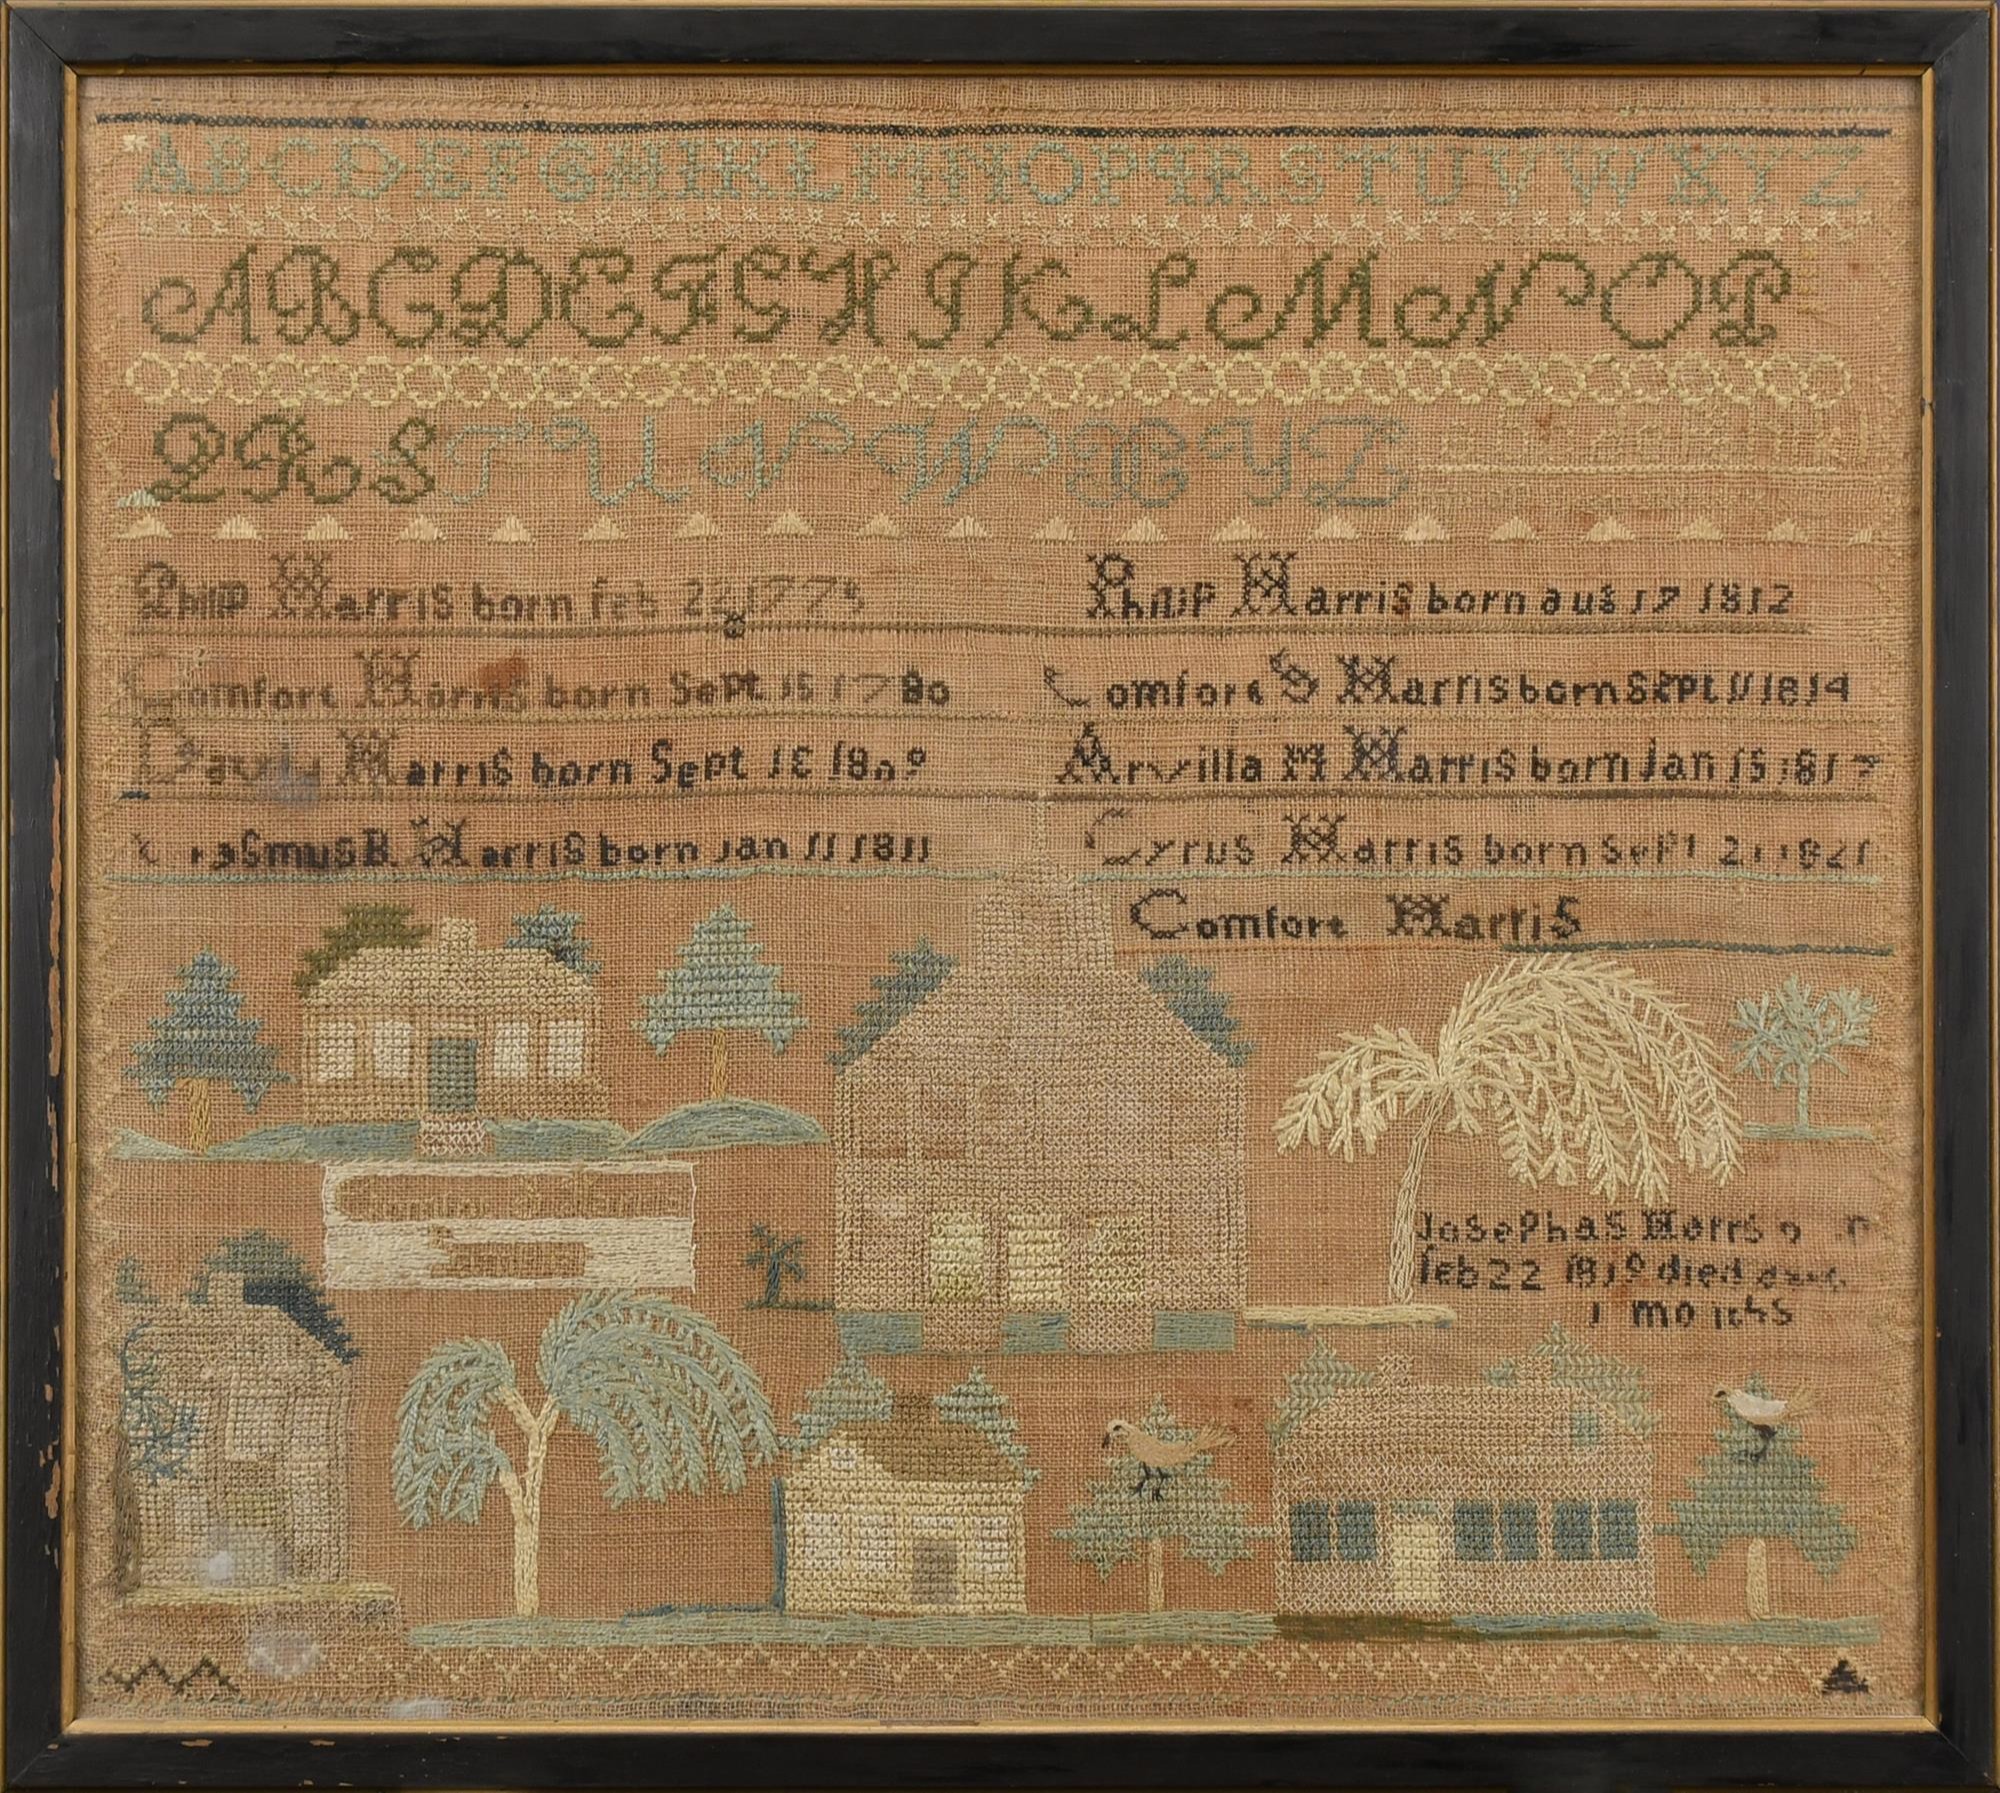 ABCDEFGHIKLMNOPQRSTUVWXYZ
ABCDEFGHIKLMNOP
QRSTUVWXYZ
Philip Harris born feb 22 1775
Comfort Harris born Sept 15 1780
Harris born Sept 1809
Erasmus B. Harris born Jan 11 1811
Philip Harris born aug 17 1812
Comfort S Harris born Sept 11 1814
Arvilla M Harris born Jan 15 1817
Cyrus Harris born Sept 21 1821
Comfort Harris
Josephas Harris
feb 22 1819 died
months